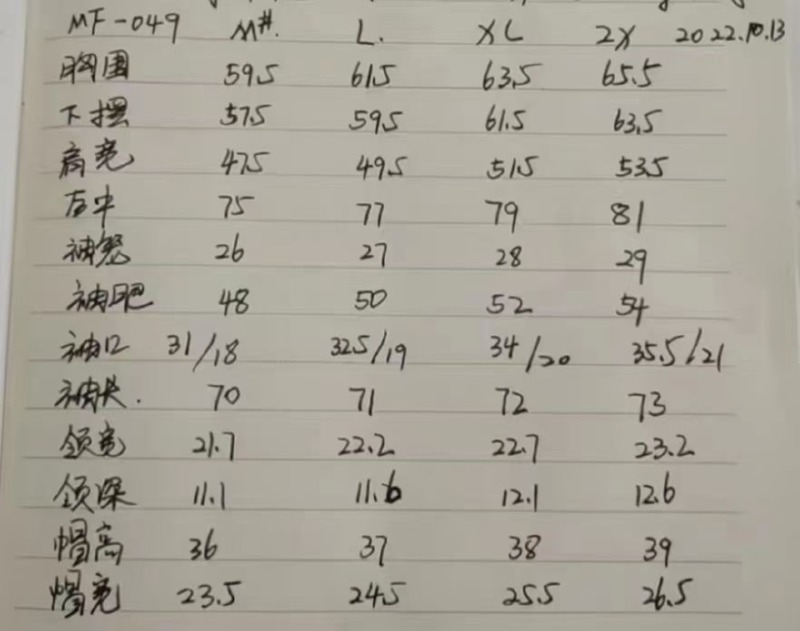 MF-049 M# L. XL 2X 2022.10.13
胸围 59.5 61.5 63.5 65.5
下摆 57.5 59.5 61.5 63.5
肩宽 47.5 49.5 51.5 53.5
后中 75 77 79 81
袖窿 26 27 28 29
袖肥 48 50 52 54
袖口 31/18 32.5/19 34/20 35.5/21
袖长. 70 71 72 73
领宽 21.7 22.2 22.7 23.2
领深 11.1 11.6 12.1 12.6
帽高 36 37 38 39
帽宽 23.5 24.5 25.5 26.5